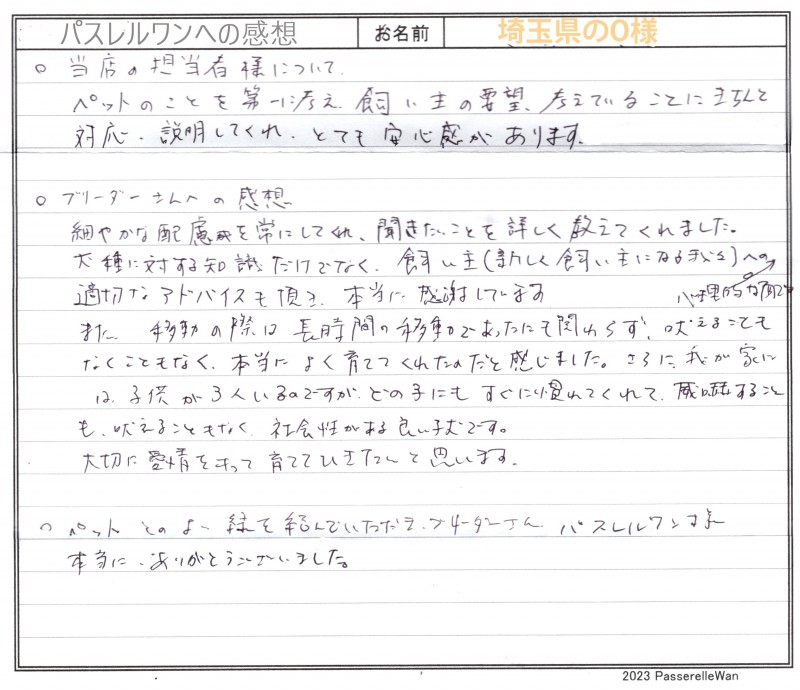 パスレルワンへの感想 お名前 埼玉県のO様
○ 当店の担当者様について.
ペットのことを第一に考え、飼い主の要望、考えていることにきちんと
対応、説明してくれ、とても安心感があります。
○ ブリーダーさんへの感想
細やかな配慮を常にしてくれ、聞きたいことを詳しく教えてくれました。
犬種に対する知識だけでなく、飼い主(新しく飼い主になる我々)への
心理的な面での
適切なアドバイスも頂き、本当に感謝しています
また、移動の際は長時間の移動であったにも関わらず、吠えることも
なくこともなく、本当によく育ててくれたのだと感じました。さらに、我が家に
は、子供が3人いるのですが、どの子にもすぐに慣れてくれて、威嚇すること
も、吠えることもなく、社会性がある良い子犬です。
大切に愛情をもって育てていきたいと思います。
○ ペットとのよい縁を結んでいただき、ブリーダーさん、パスレルワンさま
本当に、ありがとうございました。
2023 PasserelleWan